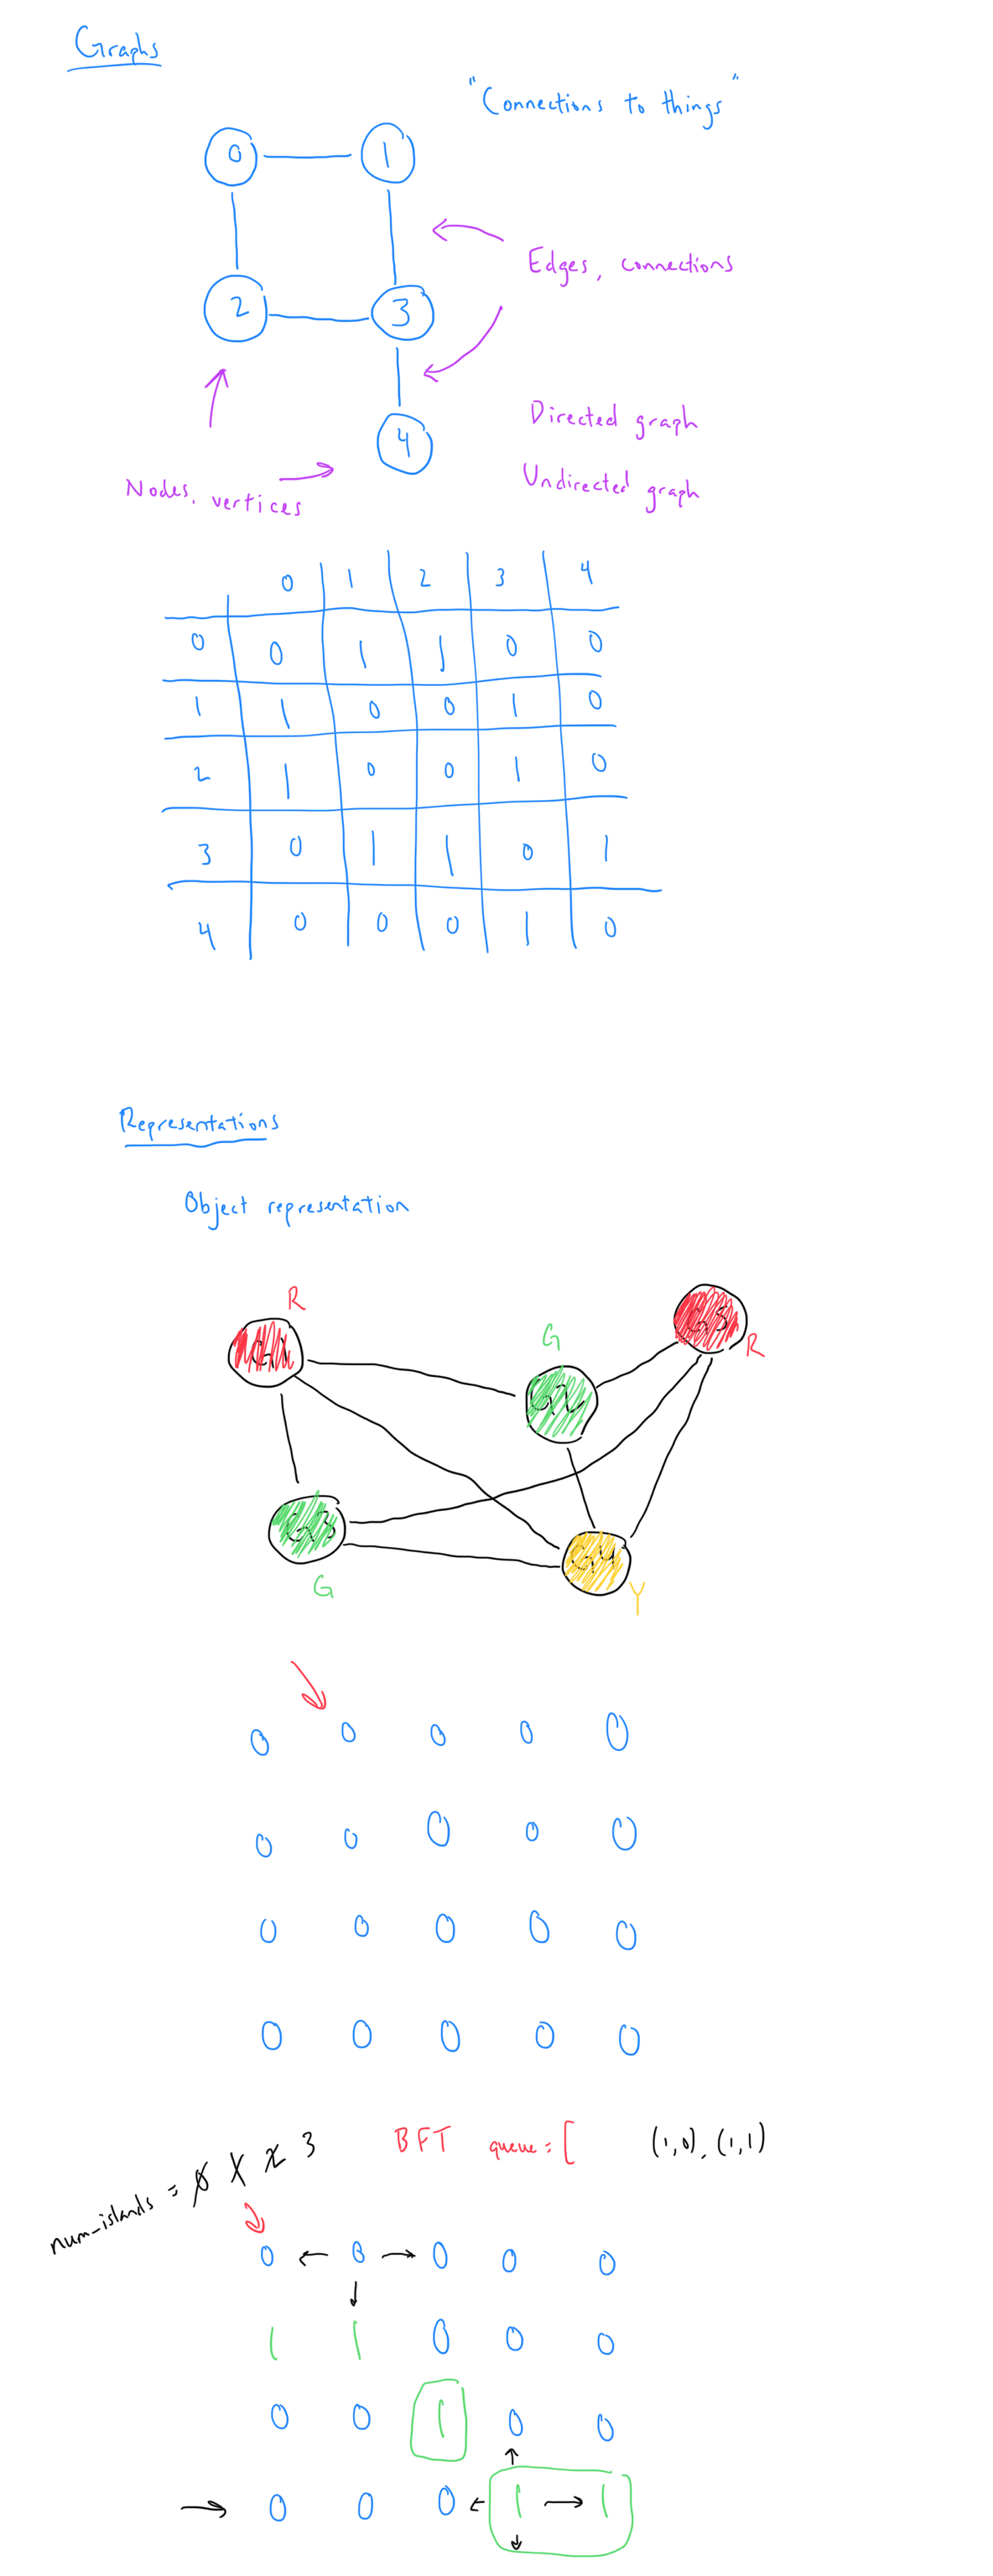 Graphs
"Connections to things"
0 1
Edges, connections
2 3
Directed graph
4
Undirected graph
Nodes, vertices
0 1 2 3 4
0 0 1 1 0 0
1 1 0 0 1 0
2 1 0 0 1 0
3 0 1 1 0 1
4 0 0 0 1 0
Representations
Object representation
R
G
R
G1
G2
G5
G3
G4
G
Y
0 0 0 0 0
0 0 0 0 0
0 0 0 0 0
0 0 0 0 0
num_islands = 0 1 2 3
BFT queue = [ (1,0), (1,1)
0 0 0 0 0
1 1 0 0 0
0 0 1 0 0
0 0 0 1 1